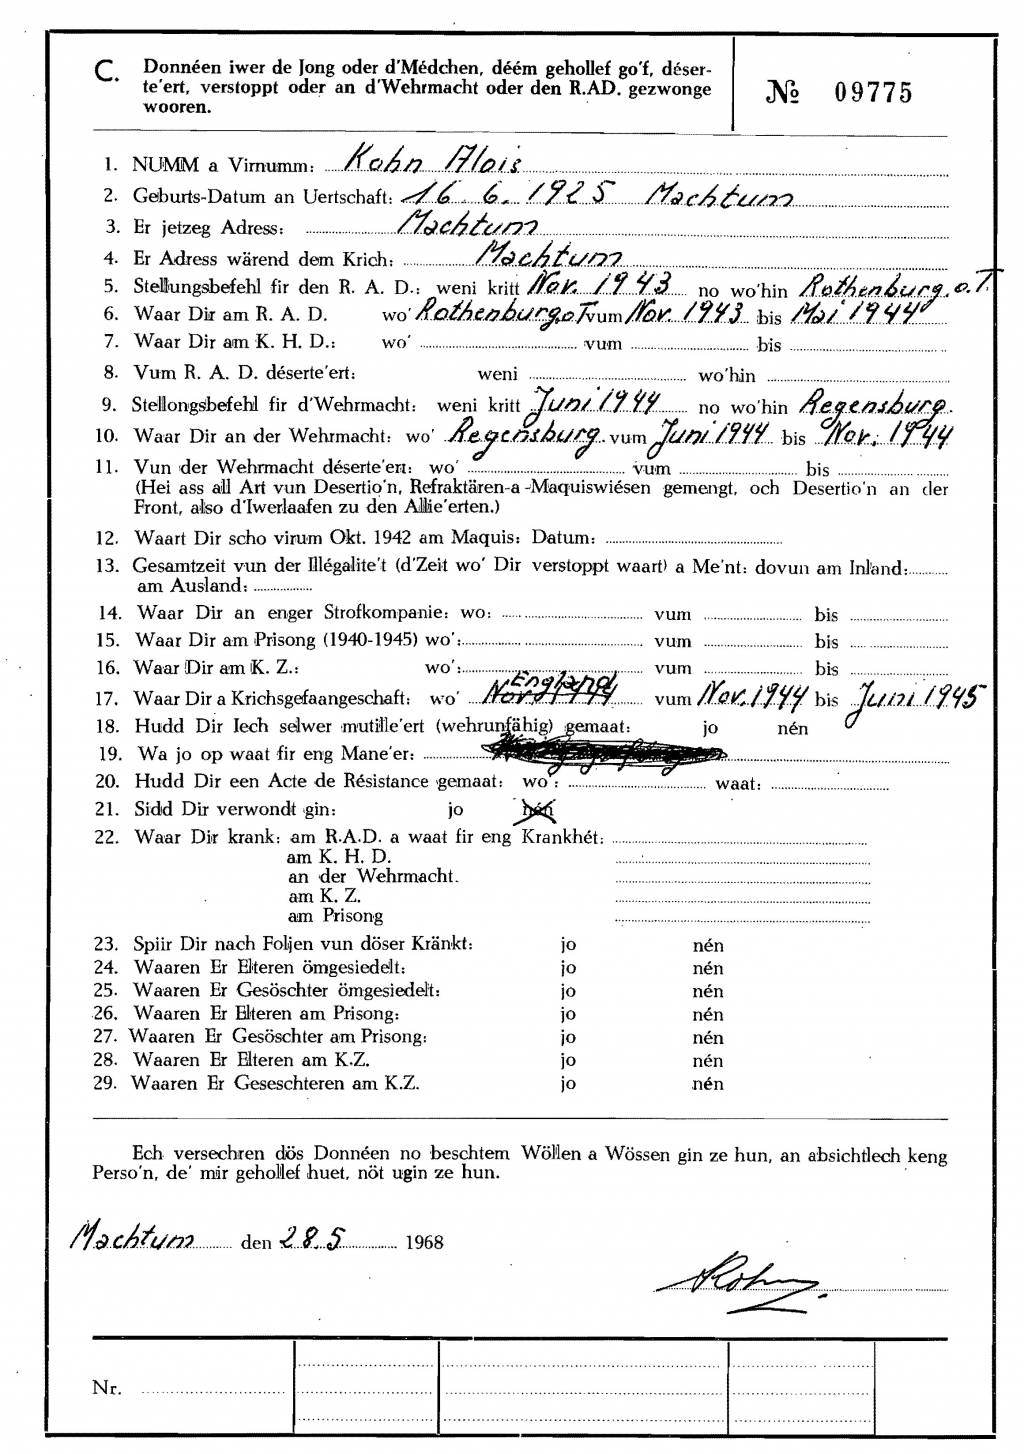 C. Donnéen iwer de Jong oder d'Médchen, déém gehollef go'f, déser-
te'ert, verstoppt oder an d'Wehrmacht oder den R.AD. gezwonge
wooren.
№ 09775
1. NUMM a Virnumm: Kohn Alois
2. Geburts-Datum an Uertschaft: 16. 6. 1925 Machtum
3. Er jetzeg Adress: Machtum
4. Er Adress wärend dem Krich: Machtum
5. Stellungsbefehl fir den R. A. D.: weni kritt Nov. 1943 no wo'hin Rothenburg. o. T.
6. Waar Dir am R. A. D. wo' Rothenburg o T vum Nov. 1943 bis Mai 1944
7. Waar Dir am K. H. D.: wo' vum bis
8. Vum R. A. D. déserte'ert: weni wo'hin
9. Stellongsbefehl fir d'Wehrmacht: weni kritt Juni 1944 no wo'hin Regensburg.
10. Waar Dir an der Wehrmacht: wo' Regensburg. vum Juni 1944 bis Nov. 1944
11. Vun der Wehrmacht déserte'ert: wo' vum bis
(Hei ass all Art vun Desertio'n, Refraktären-a -Maquiswiésen gemengt, och Desertio'n an der
Front, also d'Iwerlaafen zu den Allie'erten.)
12. Waart Dir scho virum Okt. 1942 am Maquis: Datum:
13. Gesamtzeit vun der Illégalite't (d'Zeit wo' Dir verstoppt waart) a Me'nt: dovun am Inland:
am Ausland:
14. Waar Dir an enger Strofkompanie: wo: vum bis
15. Waar Dir am Prisong (1940-1945) wo': vum bis
16. Waar Dir am K. Z.: wo': vum bis
17. Waar Dir a Krichsgefaangeschaft: wo' England vum Nov. 1944 bis Juni 1945
18. Hudd Dir Iech selwer mutille'ert (wehrunfähig) gemaat: jo nén
19. Wa jo op waat fir eng Mane'er:
20. Hudd Dir een Acte de Résistance gemaat: wo': waat:
21. Sidd Dir verwondt gin: jo nén
22. Waar Dir krank: am R.A.D. a waat fir eng Krankhét:
am K. H. D.
an der Wehrmacht.
am K. Z.
am Prisong
23. Spiir Dir nach Foljen vun döser Kränkt: jo nén
24. Waaren Er Elteren ömgesiedelt: jo nén
25. Waaren Er Gesöschter ömgesiedelt: jo nén
26. Waaren Er Elteren am Prisong: jo nén
27. Waaren Er Gesöschter am Prisong: jo nén
28. Waaren Er Elteren am K.Z. jo nén
29. Waaren Er Geseschteren am K.Z. jo nén
Ech versechren dös Donnéen no beschtem Wöllen a Wössen gin ze hun, an absichtlech keng
Perso'n, de' mir gehollef huet, nöt ugin ze hun.
Machtum den 28.5 1968
Kohn
Nr.